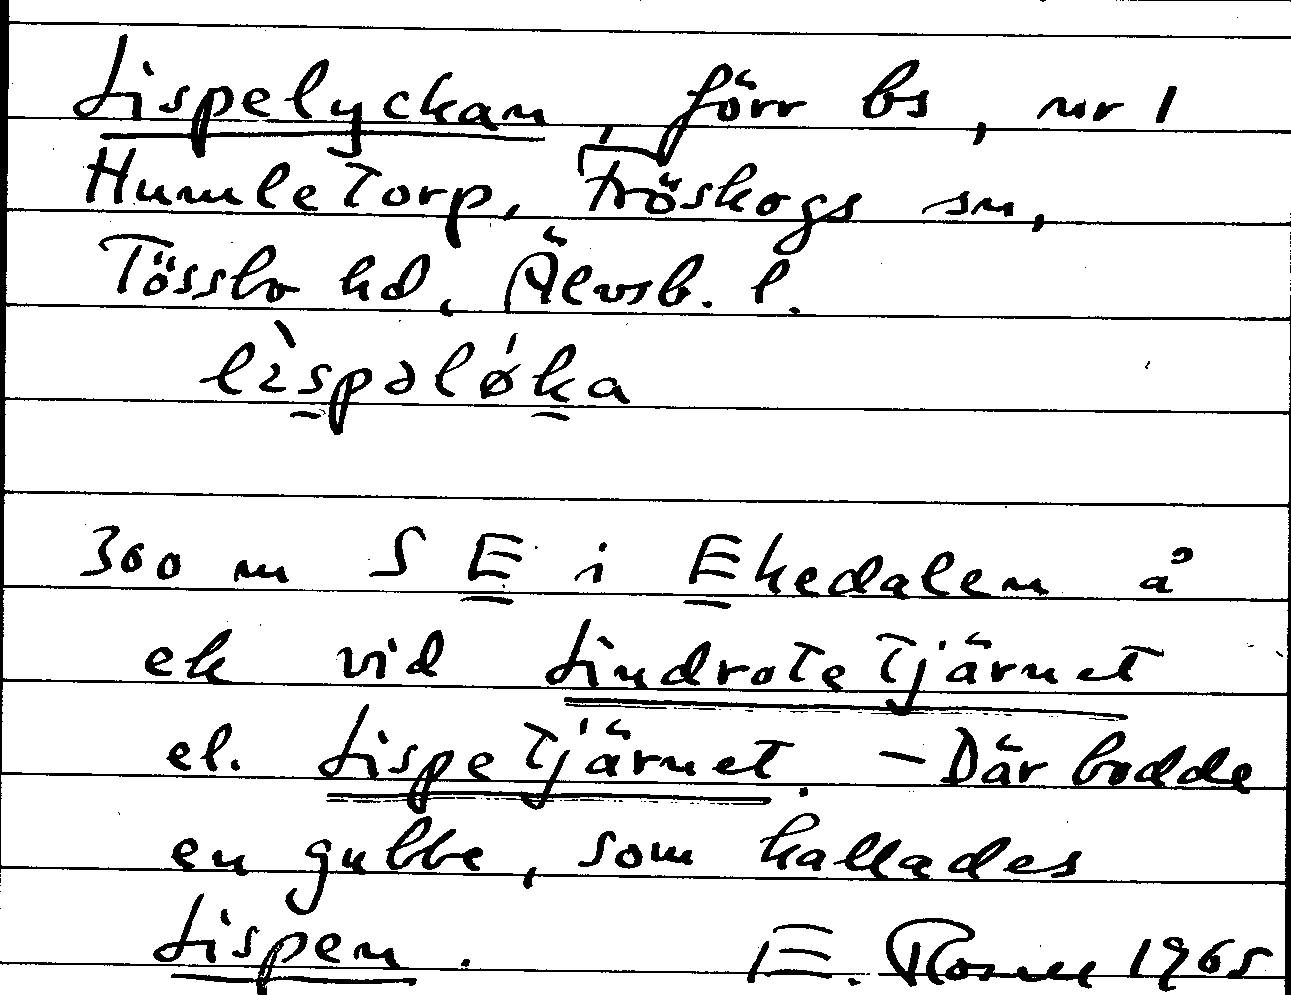 Lispelyckan, förr bs, nr 1
Humletorp, Fröskogs sn,
Tössbo hd, Älvsb. l.
lìspəlǿka
300 m S E i Ekedalen å
ek vid Lindrotetjärnet
el. Lispetjärnet. – Där bodde
en gubbe, som kallades
Lispen. E. Rosell 1965